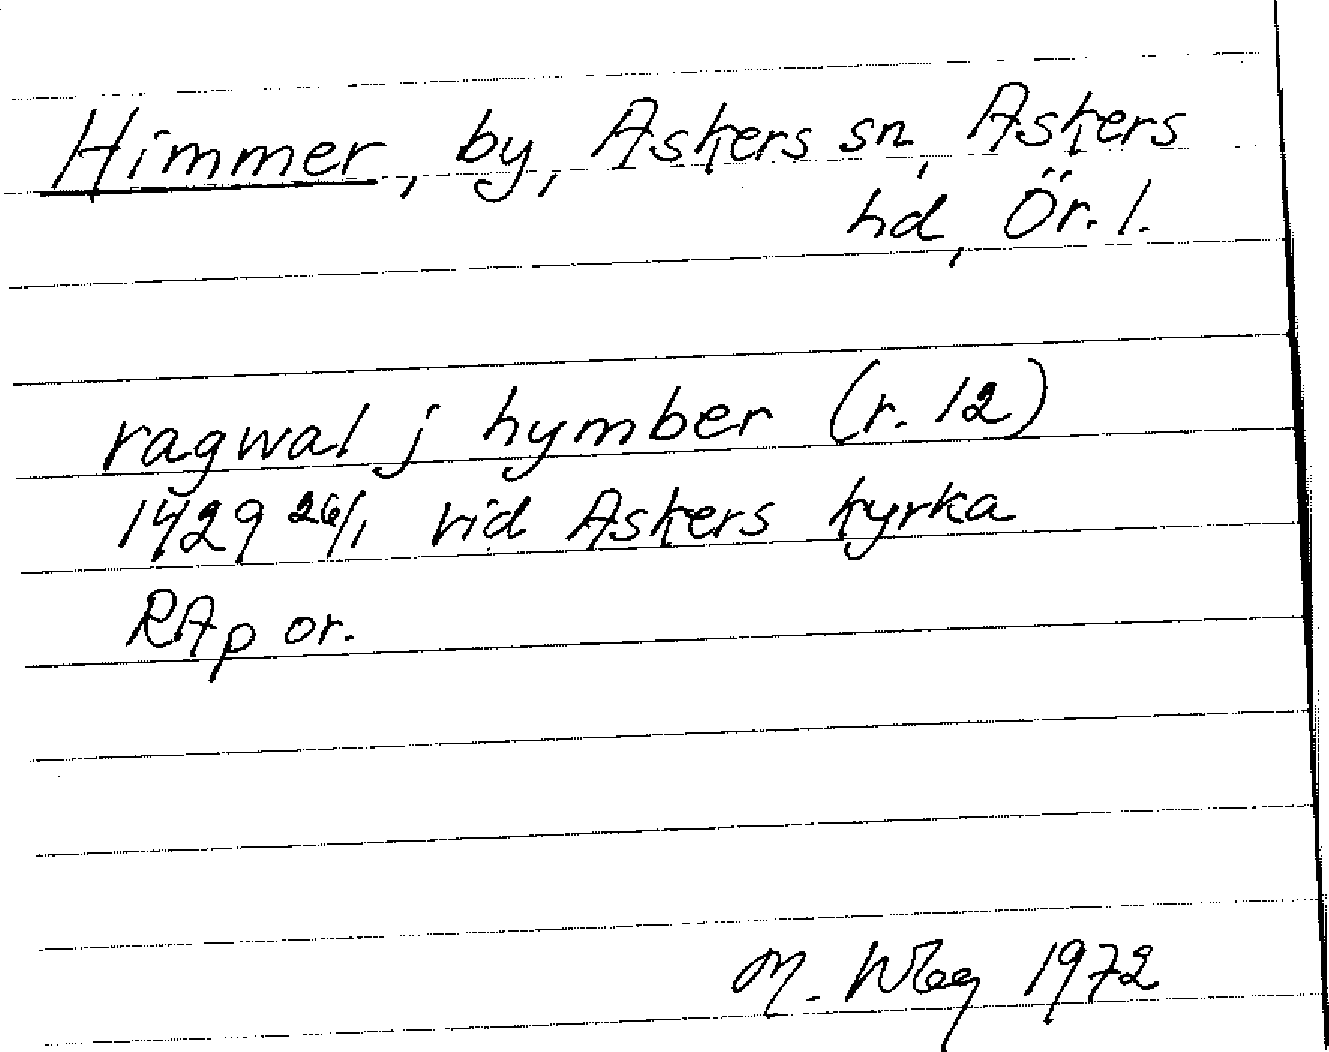 Himmer, by, Askers sn, Askers
hd, Ör. l.
ragwal j hymber (r. 12)
1429 26/1 vid Askers kyrka
RAp or.
M. 1972